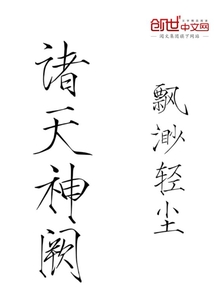 创世中文网
阅文集团旗下网站
诸天神阙
飘渺轻尘